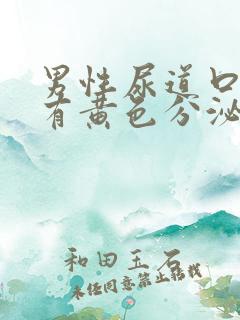 男性尿道口
有黄色分泌
和田玉石
未经同意禁止转载